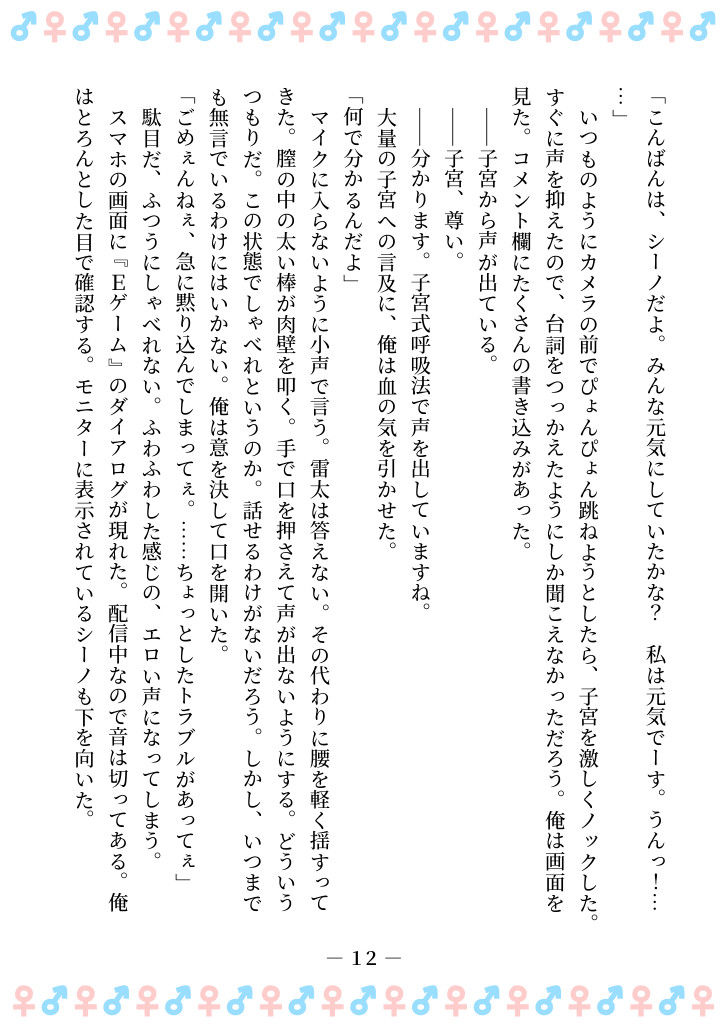 「こんばんは、シーノだよ。みんな元気にしていたかな？　私は元気でーす。うんっ！…
…」
　いつものようにカメラの前でぴょんぴょん跳ねようとしたら、子宮を激しくノックした。
すぐに声を抑えたので、台詞をつっかえたようにしか聞こえなかっただろう。俺は画面を
見た。コメント欄にたくさんの書き込みがあった。
　――子宮から声が出ている。
　――子宮、尊い。
　――分かります。子宮式呼吸法で声を出していますね。
　大量の子宮への言及に、俺は血の気を引かせた。
「何で分かるんだよ」
　マイクに入らないように小声で言う。雷太は答えない。その代わりに腰を軽く揺すって
きた。膣の中の太い棒が肉壁を叩く。手で口を押さえて声が出ないようにする。どういう
つもりだ。この状態でしゃべれというのか。話せるわけがないだろう。しかし、いつまで
も無言でいるわけにはいかない。俺は意を決して口を開いた。
「ごめぇんねぇ、急に黙り込んでしまってぇ。……ちょっとしたトラブルがあってぇ」
　駄目だ、ふつうにしゃべれない。ふわふわした感じの、エロい声になってしまう。
　スマホの画面に『Ｅゲーム』のダイアログが現れた。配信中なので音は切ってある。俺
はとろんとした目で確認する。モニターに表示されているシーノも下を向いた。
― 12 ―